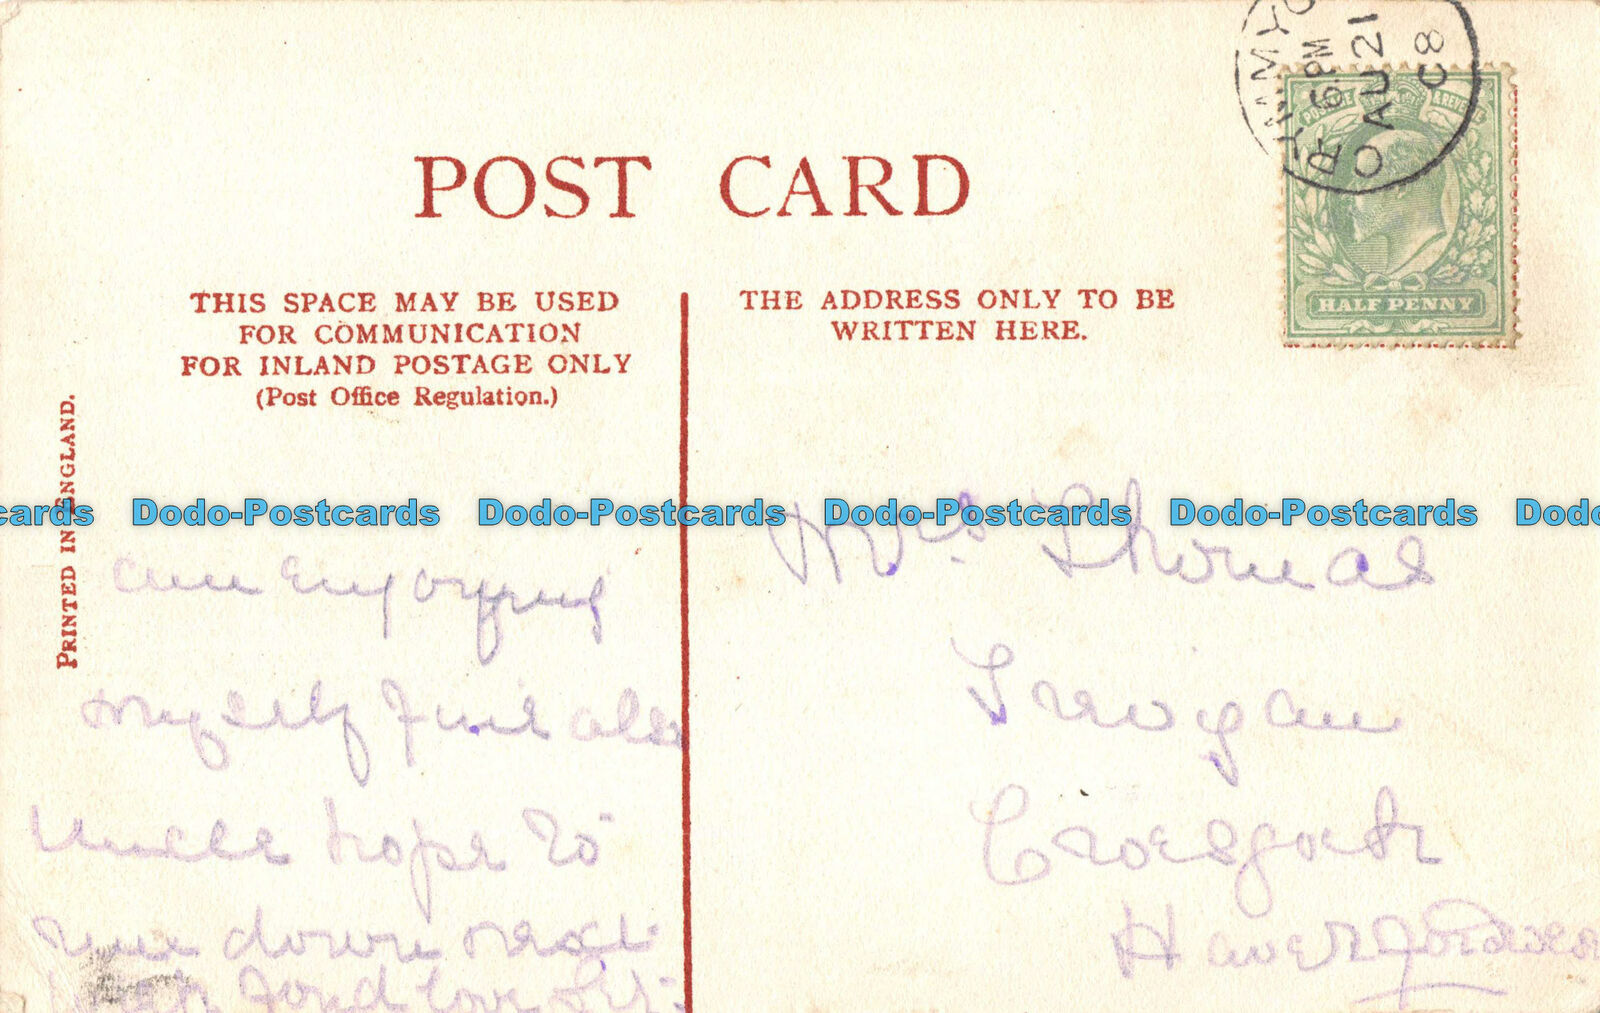 POST CARD
THIS SPACE MAY BE USED
FOR COMMUNICATION
FOR INLAND POSTAGE ONLY
(Post Office Regulation.)
THE ADDRESS ONLY TO BE
WRITTEN HERE.
6 PM
AU 21
08
POSTAGE & REVENUE
HALF PENNY
PRINTED IN ENGLAND.
cards Dodo-Postcards Dodo-Postcards Dodo-Postcards Dodo-Postcards Dodo
am enjoying
myself fine
uncle hope to
run down next
fond love
Mrs Thomas
Trevigan
Croesgoch
Haverfordwest